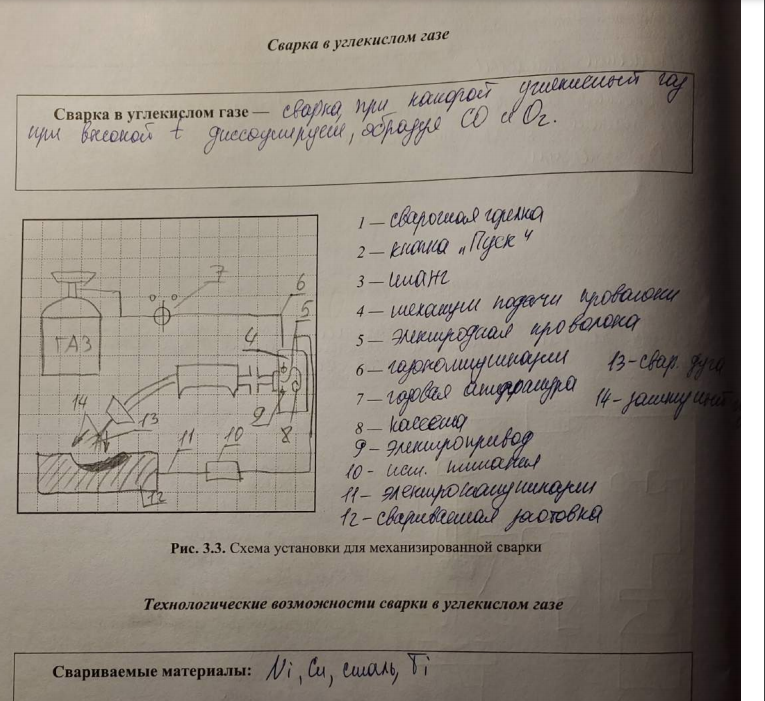 Сварка в углекислом газе
Сварка в углекислом газе — сварка, при которой углекислый газ
при высокой t диссоциирует, образуя CO и O₂.
ГАЗ
7
6
5
4
14
13
11
10
9
8
12
1 — сварочная горелка
2 — кнопка "Пуск"
3 — шланг
4 — механизм подачи проволоки
5 — электродная проволока
6 — газокоммуникации
13 - свар. дуга
7 — газовая аппаратура
14 - защитный
8 — кассета
9 — электропривод
10 - ист. питания
11 - электрокоммуникации
12 - свариваемая заготовка
Рис. 3.3. Схема установки для механизированной сварки
Технологические возможности сварки в углекислом газе
Свариваемые материалы: Ni, Cu, сталь, Ti